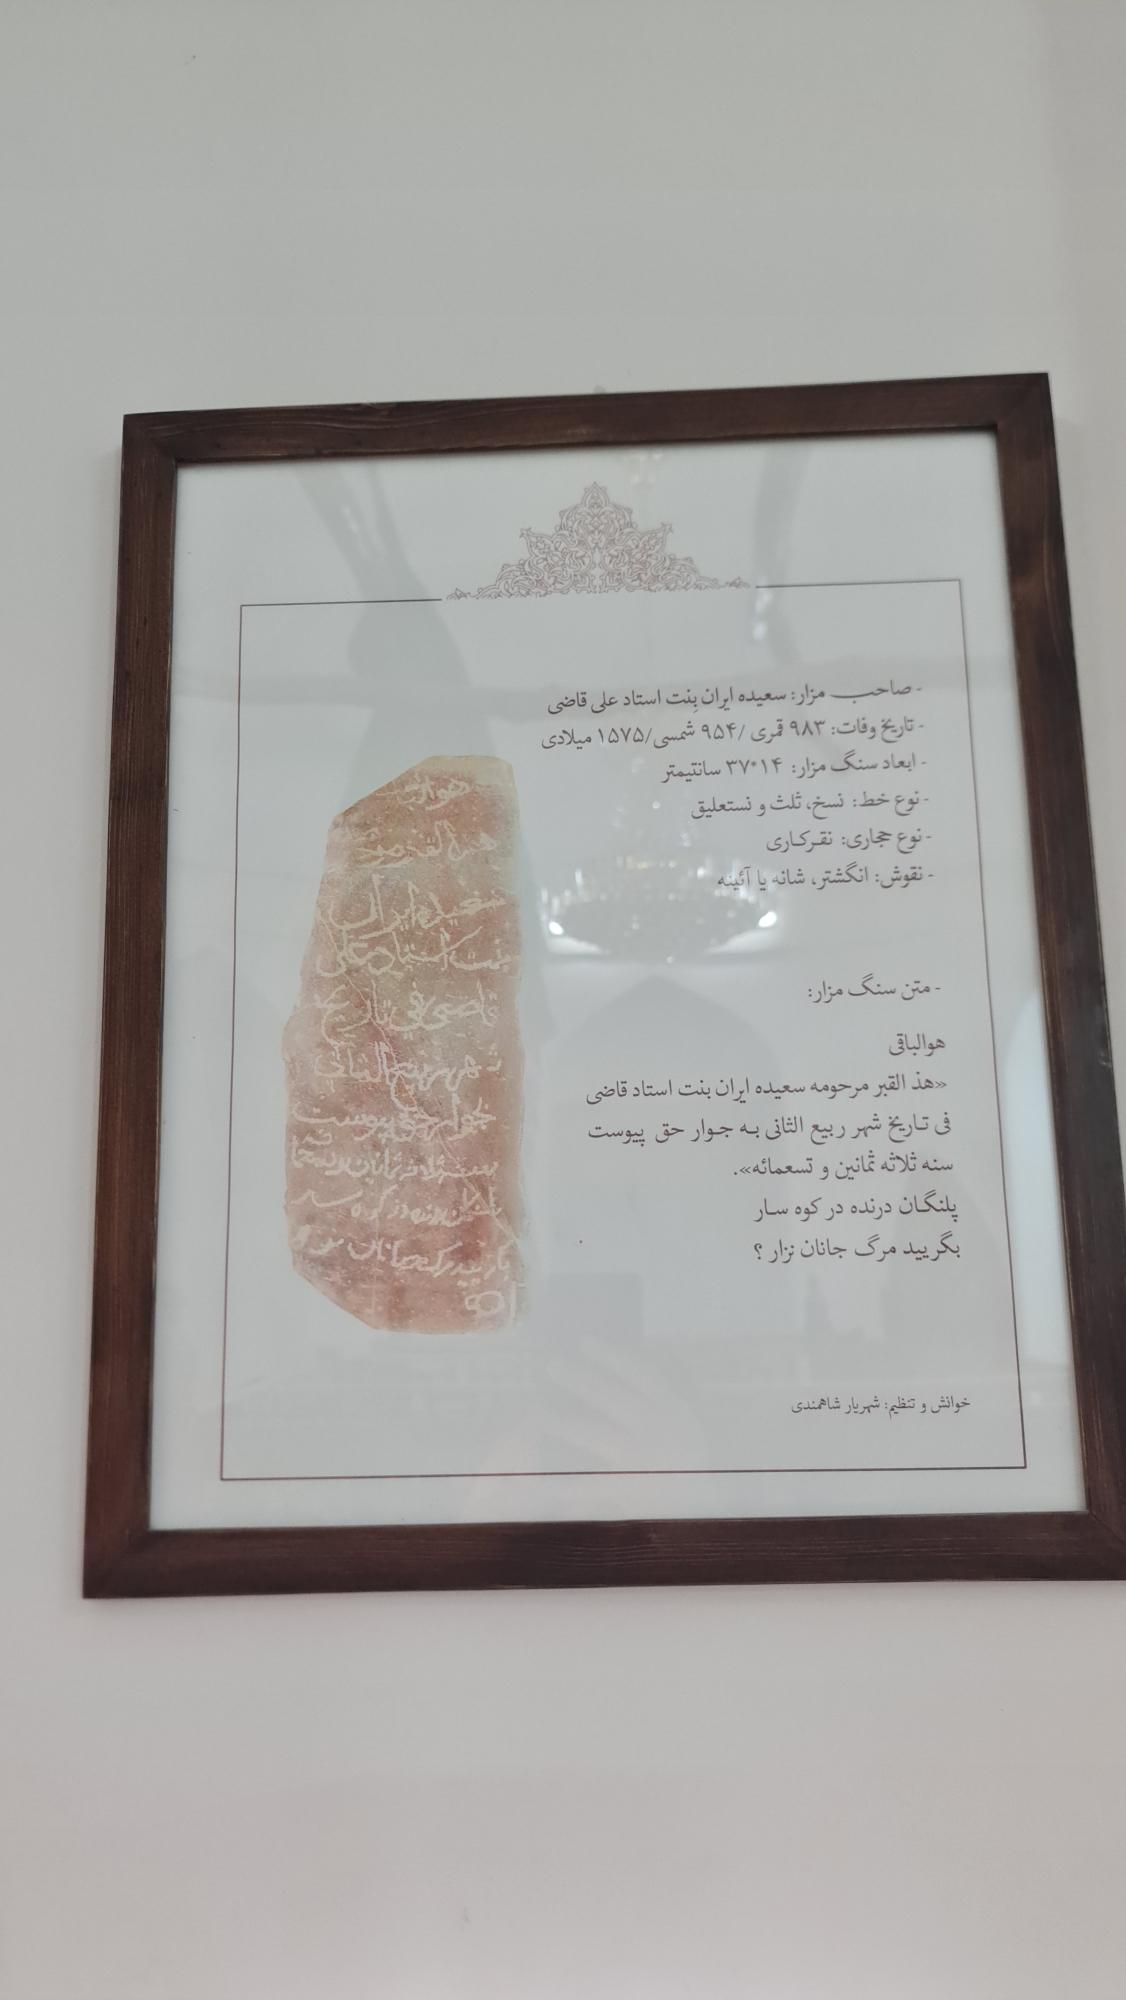 - صاحب مزار: سعیده ایران بِنت استاد علی قاضی
- تاریخ وفات: ۹۸۳ قمری /۹۵۴ شمسی/۱۵۷۵ میلادی
- ابعاد سنگ مزار: ۱۴*۳۷ سانتیمتر
- نوع خط: نسخ، ثلث و نستعلیق
- نوع حجاری: نقرکاری
- نقوش: انگشتر، شانه یا آئینه
- متن سنگ مزار:
هوالباقی
«هذ القبر مرحومه سعیده ایران بنت استاد قاضی
فی تاریخ شهر ربیع الثانی به جوار حق پیوست
سنه ثلاثه ثمانین و تسعمائه».
پلنگان درنده در کوه سار
بگریید مرگ جانان نزار ؟
خوانش و تنظیم: شهریار شاهمندی
سعیده ایران
بنت استاد علی
قاضی فی تاریخ
شهر ربیع الثانی
بجوار حق پیوست